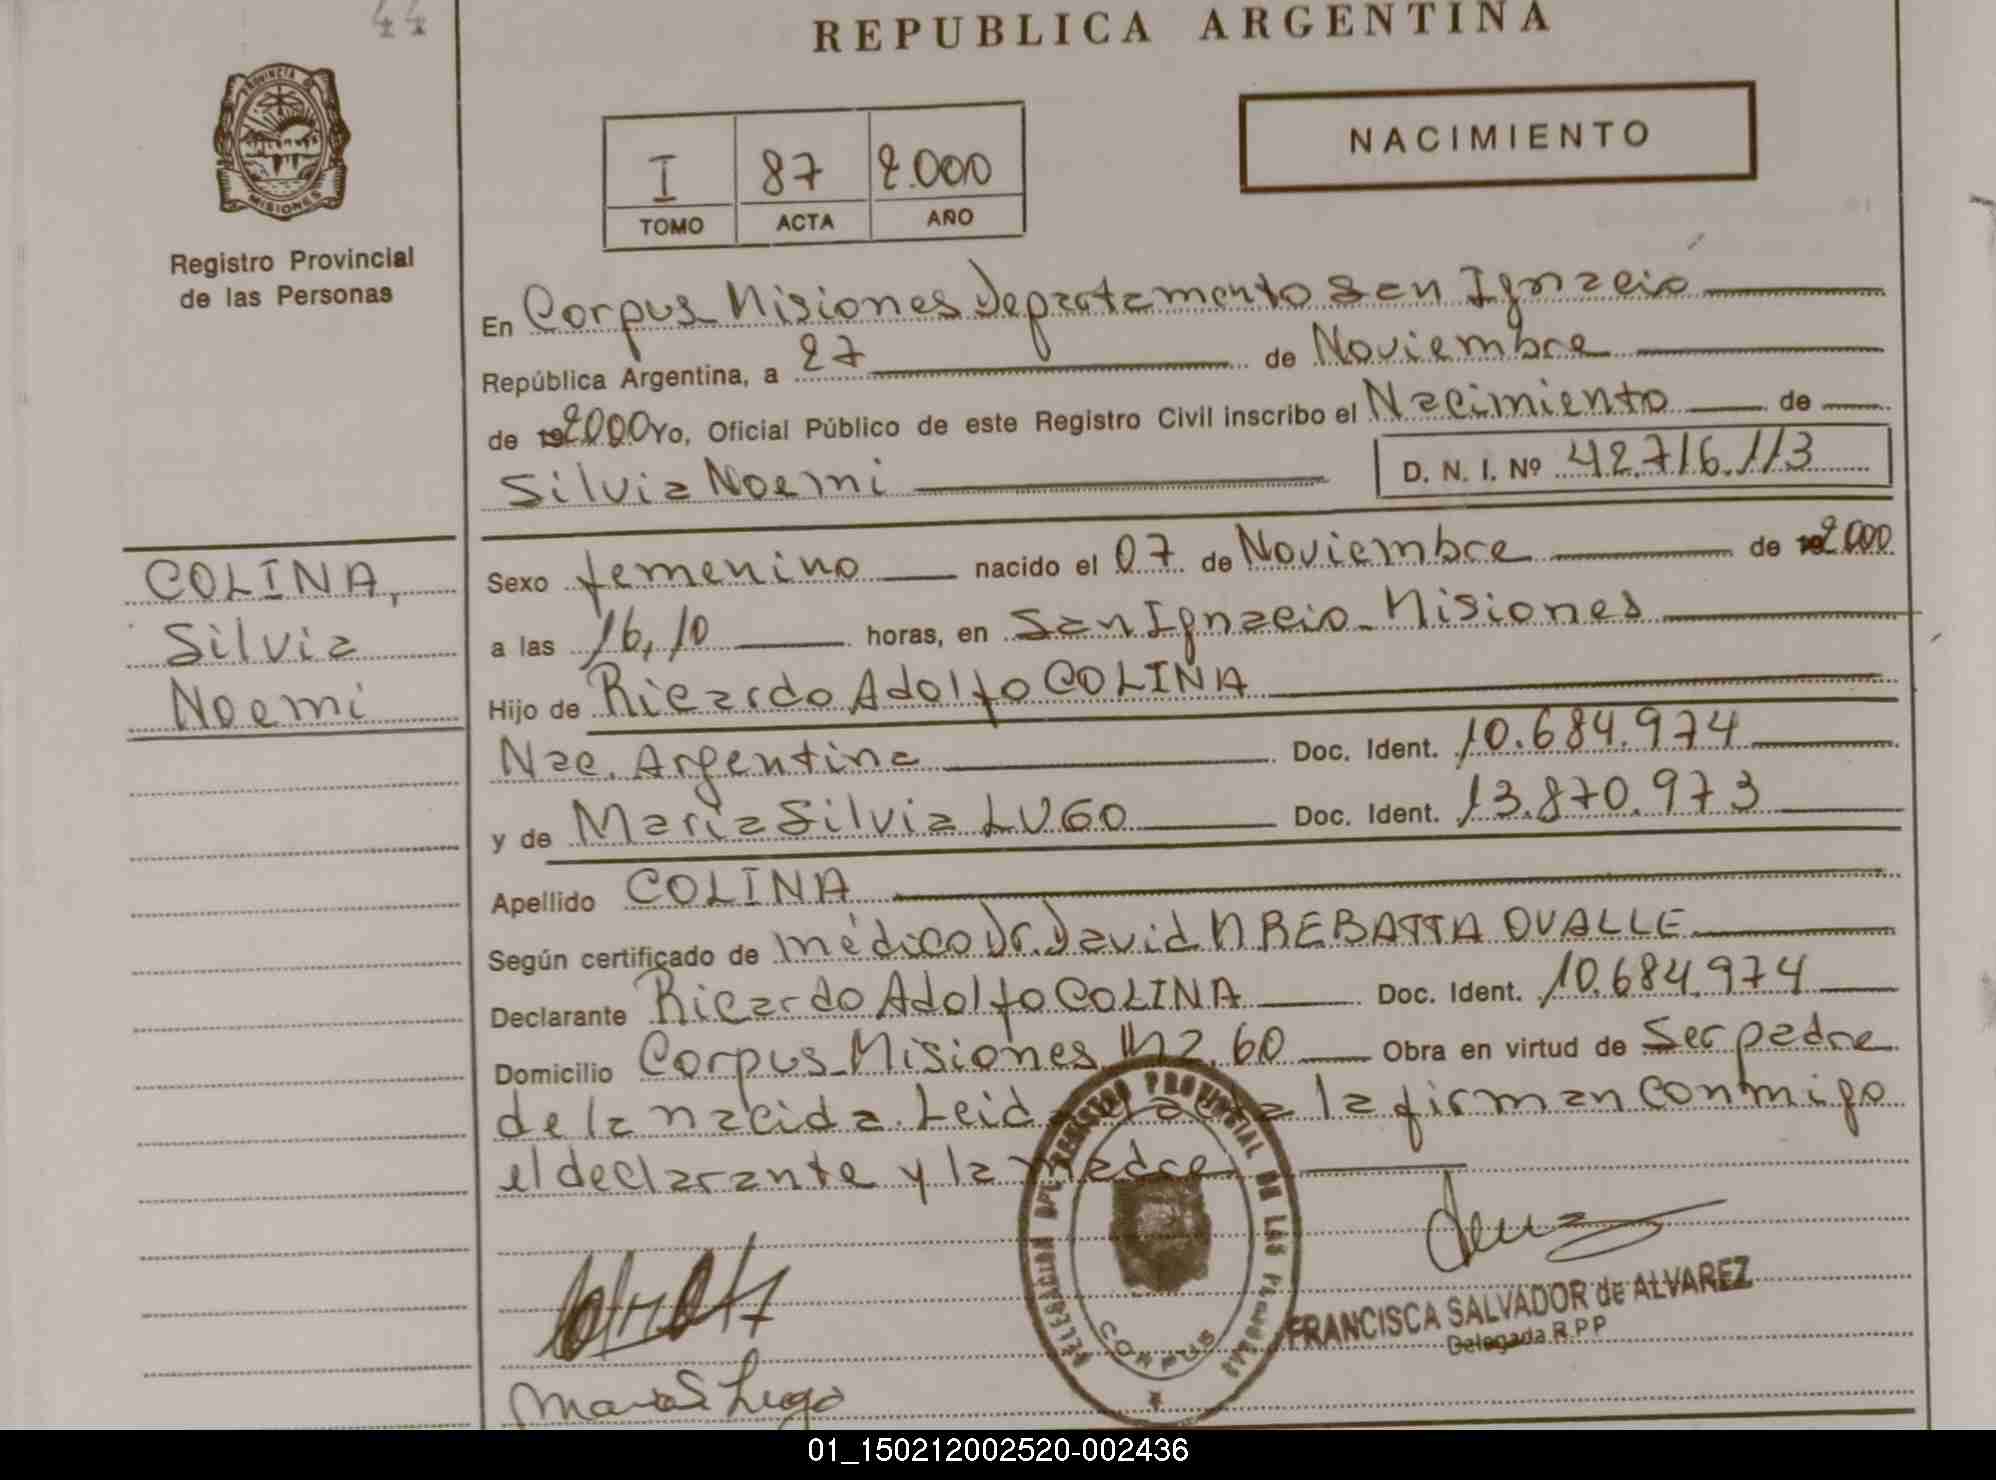 44
REPUBLICA ARGENTINA
PROVINCIA DE
MISIONES
Registro Provincial
de las Personas
I 87 2.000
TOMO ACTA AÑO
NACIMIENTO
En Corpus Misiones Departamento San Ignacio
República Argentina, a 27 de Noviembre
de 192000 Yo, Oficial Público de este Registro Civil inscribo el Nacimiento de
Silvia Noemi D. N. I. Nº 42.716.113
COLINA,
Silvia
Noemi
Sexo femenino nacido el 07 de Noviembre de 192000
a las 16,10 horas, en San Ignacio Misiones
Hijo de Ricardo Adolfo COLINA
Nac. Argentina Doc. Ident. 10.684.974
y de Maria Silvia LUGO Doc. Ident. 13.870.973
Apellido COLINA
Según certificado de médico Dr. David N REBATTA OVALLE
Declarante Ricardo Adolfo COLINA Doc. Ident. 10.684.974
Domicilio Corpus Misiones Mz. 60 Obra en virtud de Ser padre
de la nacida. Leida el acta la firman conmigo
el declarante y la madre
DELEGACION DEL REGISTRO PROVINCIAL DE LAS PERSONAS
CORPUS
FRANCISCA SALVADOR de ALVAREZ
Delegada R.P.P
Maria S Lugo
01_150212002520-002436